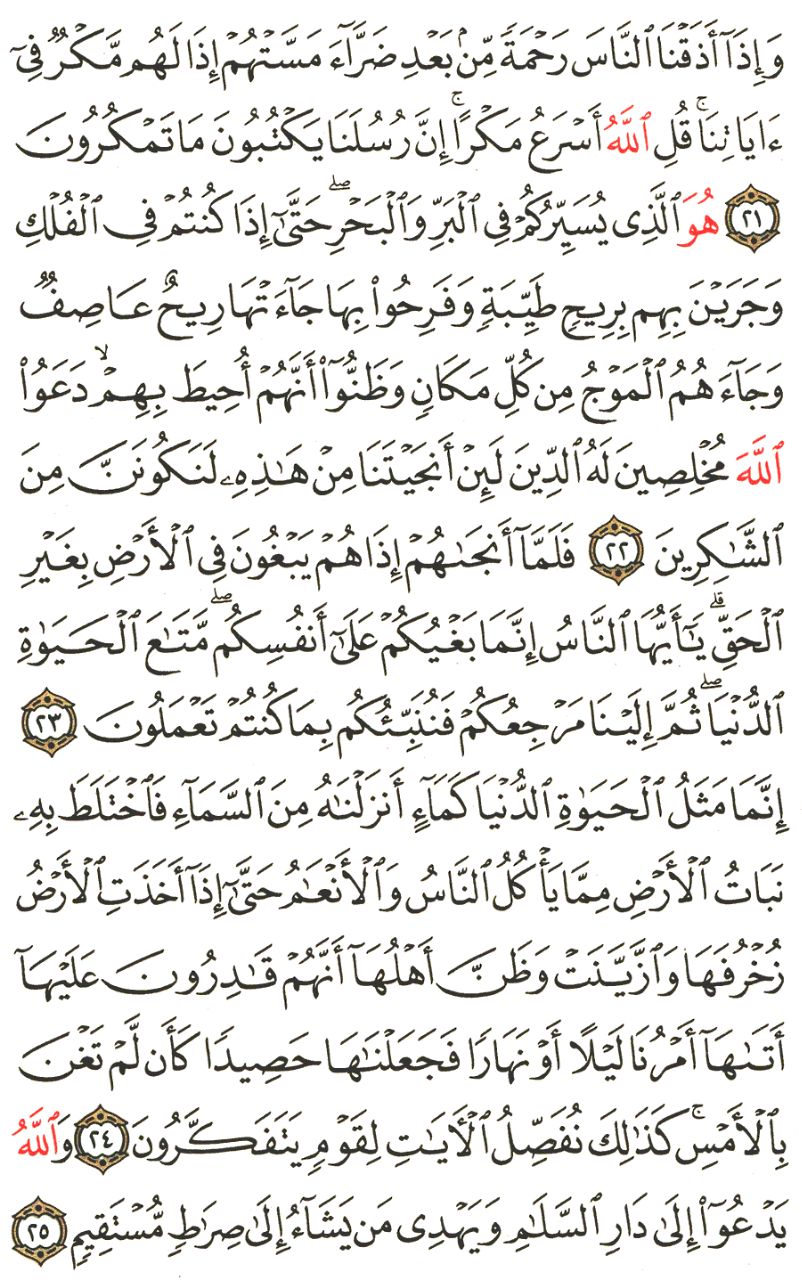 وَإِذَآ أَذَقْنَا ٱلنَّاسَ رَحْمَةً مِّنۢ بَعْدِ ضَرَّآءَ مَسَّتْهُمْ إِذَا لَهُم مَّكْرٌ فِىٓ
ءَايَاتِنَا ۚ قُلِ ٱللَّهُ أَسْرَعُ مَكْرًا ۚ إِنَّ رُسُلَنَا يَكْتُبُونَ مَا تَمْكُرُونَ
٢١ هُوَ ٱلَّذِى يُسَيِّرُكُمْ فِى ٱلْبَرِّ وَٱلْبَحْرِ ۖ حَتَّىٰٓ إِذَا كُنتُمْ فِى ٱلْفُلْكِ
وَجَرَيْنَ بِهِم بِرِيحٍ طَيِّبَةٍ وَفَرِحُوا۟ بِهَا جَآءَتْهَا رِيحٌ عَاصِفٌ
وَجَآءَهُمُ ٱلْمَوْجُ مِن كُلِّ مَكَانٍ وَظَنُّوٓا۟ أَنَّهُمْ أُحِيطَ بِهِمْ ۙ دَعَوُا۟
ٱللَّهَ مُخْلِصِينَ لَهُ ٱلدِّينَ لَئِنْ أَنجَيْتَنَا مِنْ هَـٰذِهِۦ لَنَكُونَنَّ مِنَ
ٱلشَّـٰكِرِينَ ٢٢ فَلَمَّآ أَنجَىٰهُمْ إِذَا هُمْ يَبْغُونَ فِى ٱلْأَرْضِ بِغَيْرِ
ٱلْحَقِّ ۗ يَـٰٓأَيُّهَا ٱلنَّاسُ إِنَّمَا بَغْيُكُمْ عَلَىٰٓ أَنفُسِكُم ۖ مَّتَـٰعَ ٱلْحَيَوٰةِ
ٱلدُّنْيَا ۖ ثُمَّ إِلَيْنَا مَرْجِعُكُمْ فَنُنَبِّئُكُم بِمَا كُنتُمْ تَعْمَلُونَ ٢٣
إِنَّمَا مَثَلُ ٱلْحَيَوٰةِ ٱلدُّنْيَا كَمَآءٍ أَنزَلْنَـٰهُ مِنَ ٱلسَّمَآءِ فَٱخْتَلَطَ بِهِۦ
نَبَاتُ ٱلْأَرْضِ مِمَّا يَأْكُلُ ٱلنَّاسُ وَٱلْأَنْعَـٰمُ حَتَّىٰٓ إِذَآ أَخَذَتِ ٱلْأَرْضُ
زُخْرُفَهَا وَٱزَّيَّنَتْ وَظَنَّ أَهْلُهَآ أَنَّهُمْ قَـٰدِرُونَ عَلَيْهَآ
أَتَىٰهَآ أَمْرُنَا لَيْلًا أَوْ نَهَارًا فَجَعَلْنَـٰهَا حَصِيدًا كَأَن لَّمْ تَغْنَ
بِٱلْأَمْسِ ۚ كَذَٰلِكَ نُفَصِّلُ ٱلْـَٔايَـٰتِ لِقَوْمٍ يَتَفَكَّرُونَ ٢٤ وَٱللَّهُ
يَدْعُوٓا۟ إِلَىٰ دَارِ ٱلسَّلَـٰمِ وَيَهْدِى مَن يَشَآءُ إِلَىٰ صِرَٰطٍ مُّسْتَقِيمٍ ٢٥